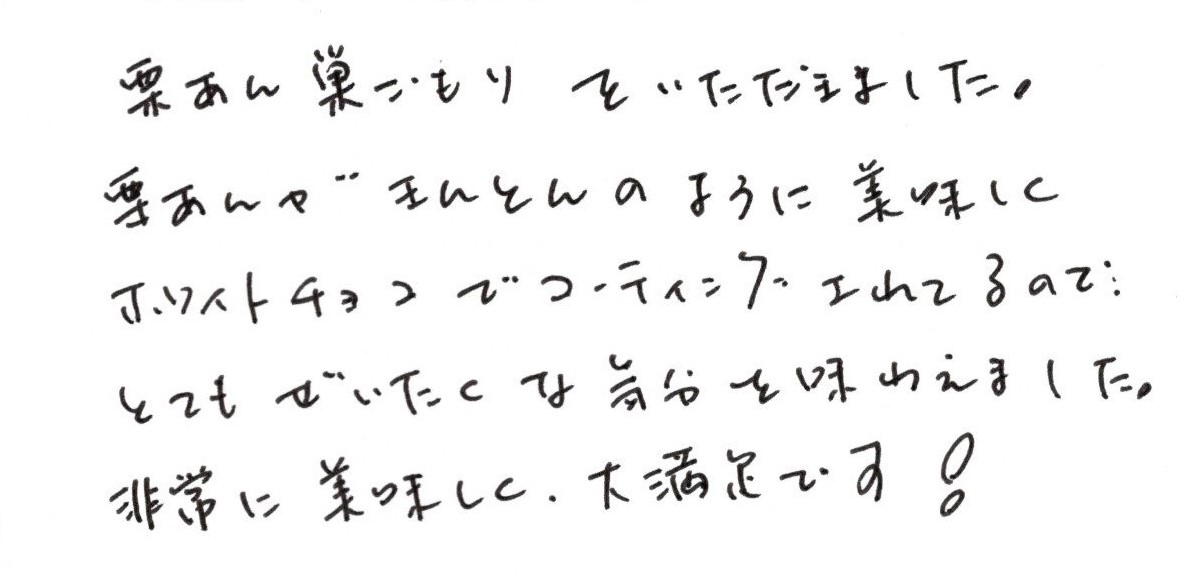 栗あん巣ごもりをいただきました。
栗あんがきんとんのように美味しく
ホワイトチョコでコーティングされてるので
とてもぜいたくな気分を味わえました。
非常に美味しく、大満足です!